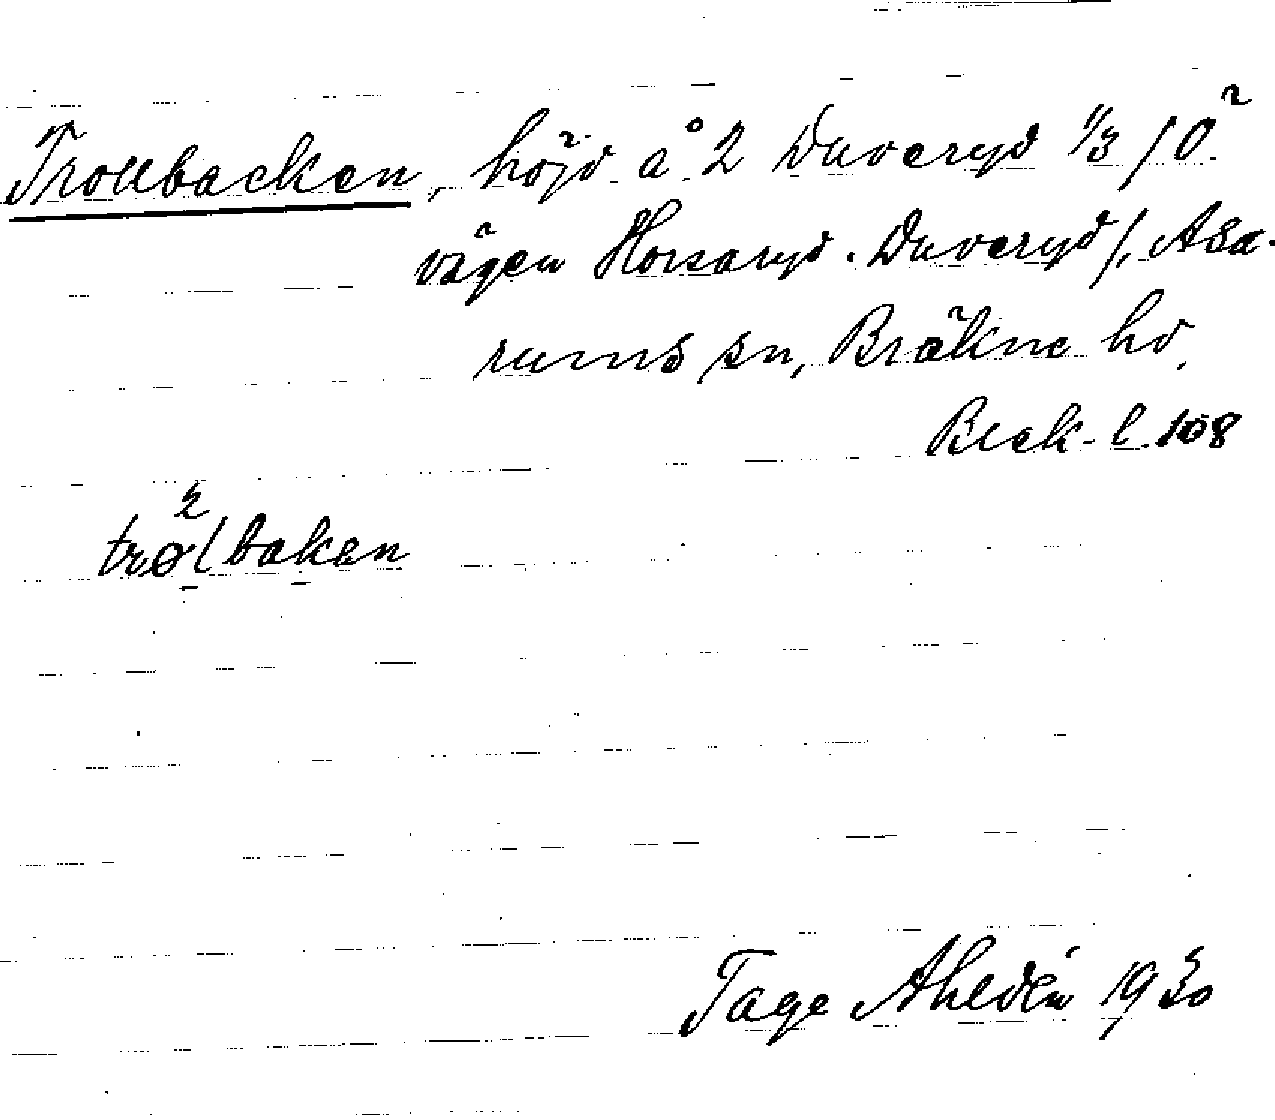 Trollbacken, höjd å 2 Duveryd 1/3 /Ö
vägen Horsaryd. Duveryd/, Asa-
rums sn, Bräkne hd.
Bleck. l. 108
trølbakan
Tage Ahldén 1930